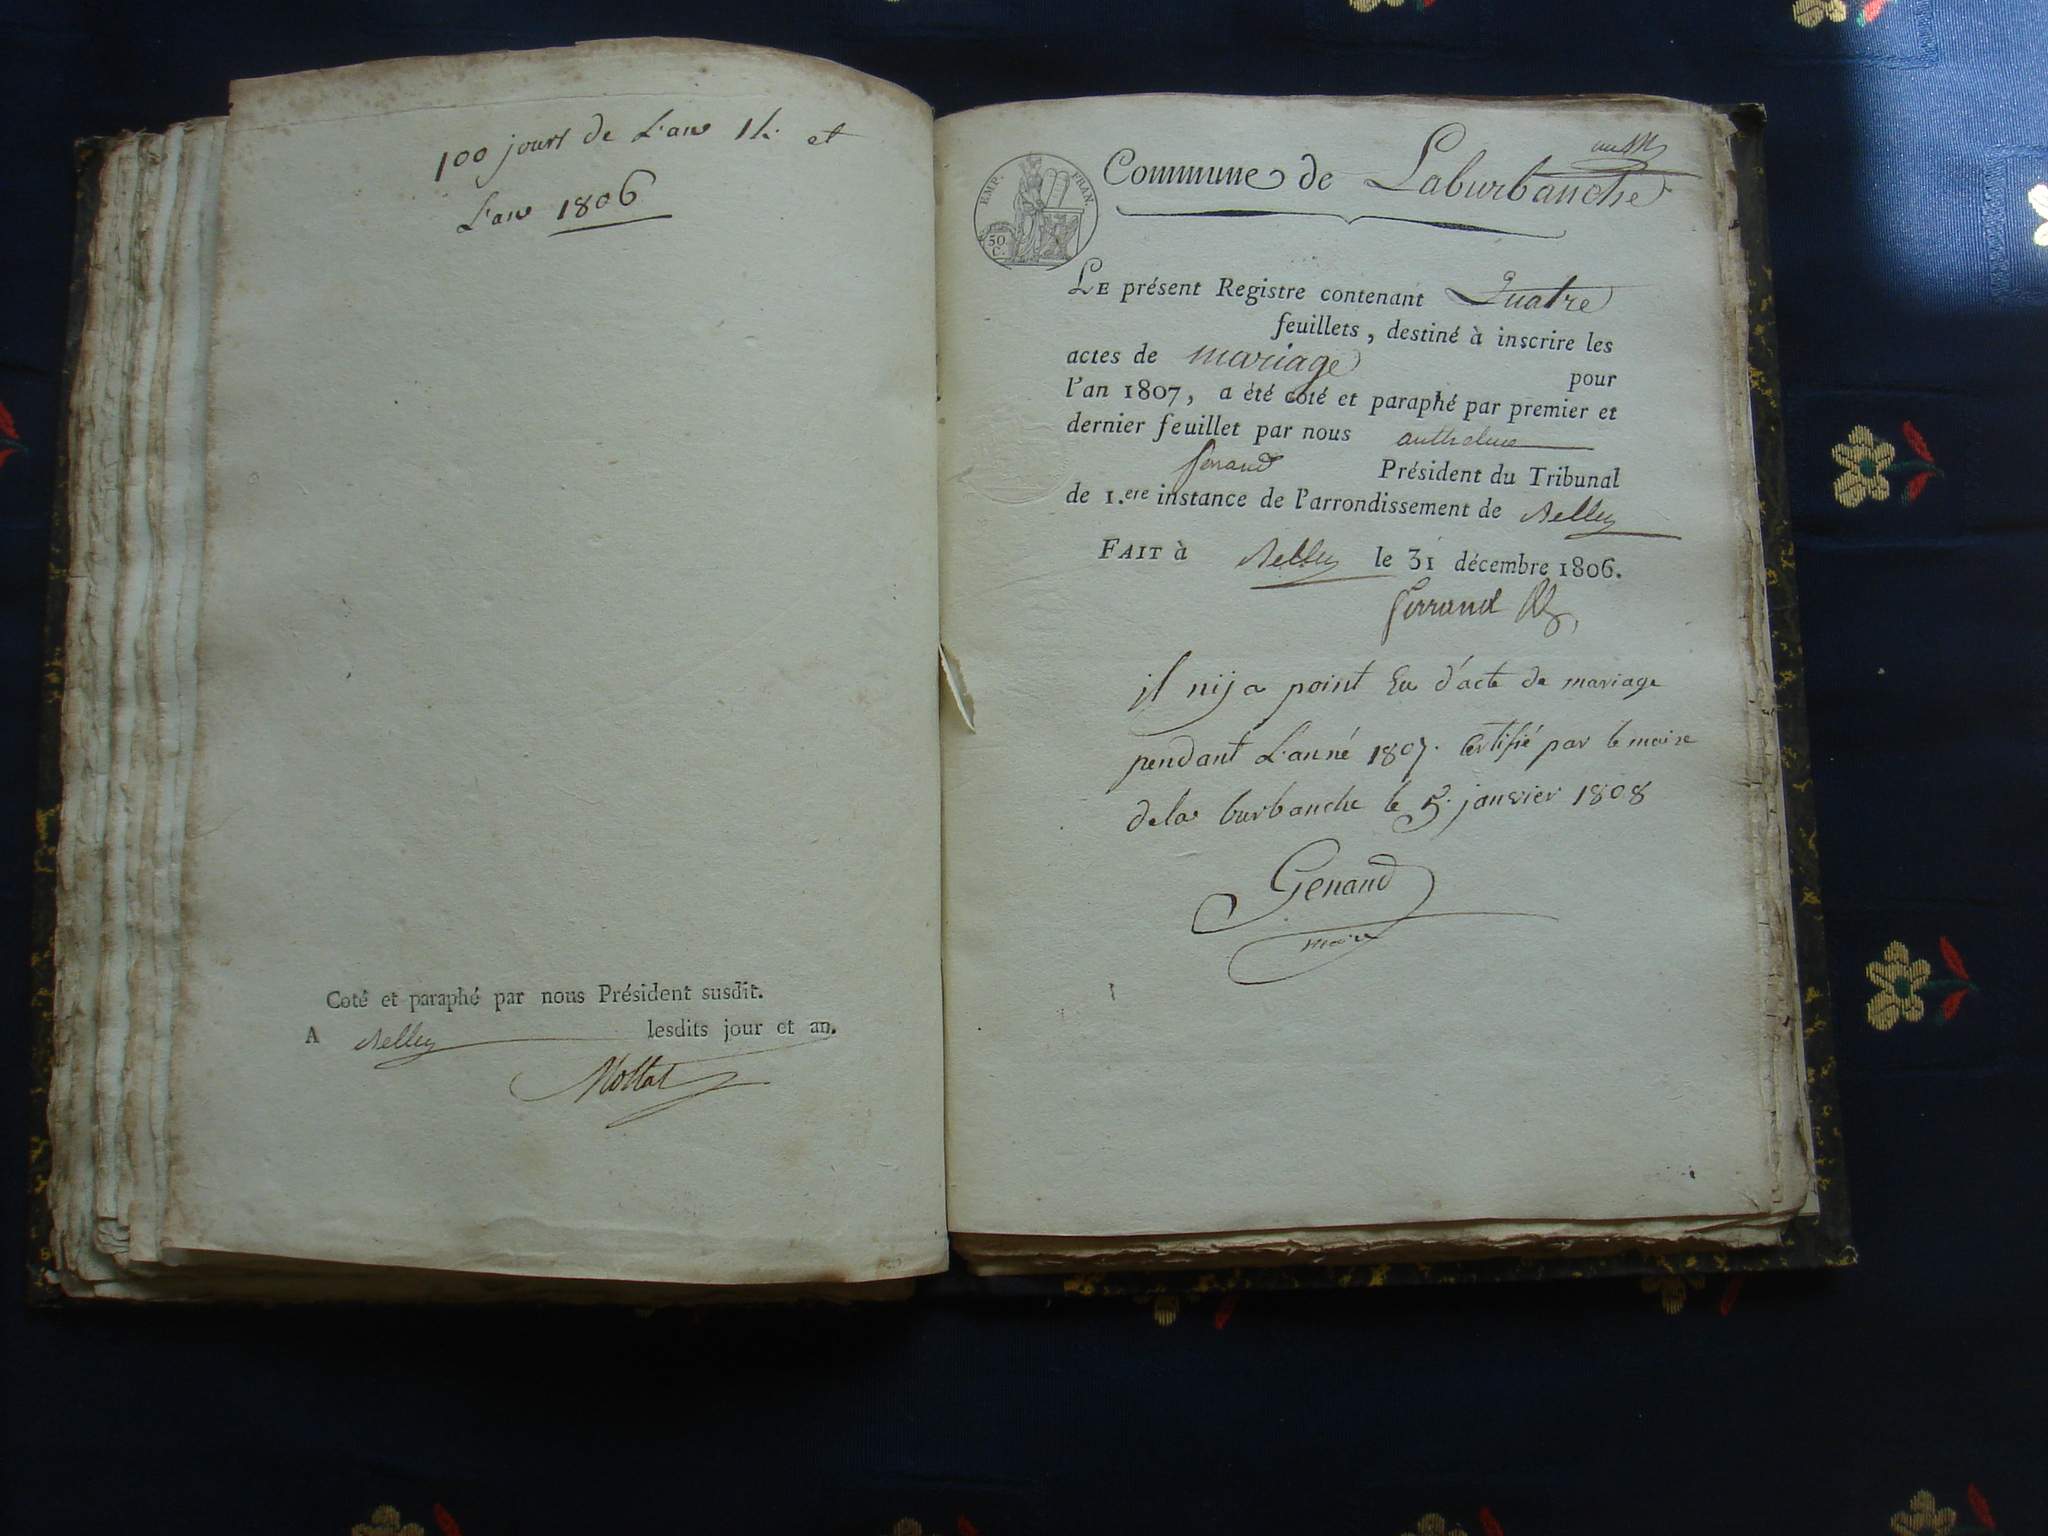 100 jours de L'an 14 et
L'an 1806
Coté et paraphé par nous Président susdit.
A Belley lesdits jour et an.
Mollet
EMP. FRAN.
50
C.
Commune de Laburbanche
LE présent Registre contenant Quatre
feuillets, destiné à inscrire les
actes de mariage pour
l'an 1807, a été coté et paraphé par premier et
dernier feuillet par nous anthelme
ferrand Président du Tribunal
de 1.ere instance de l'arrondissement de Belley
FAIT à Belley le 31 décembre 1806.
ferrand
il nij a point Eu d'acte de mariage
pendant L'anné 1807. Certifié par le maire
dela burbanche le 5. janvier 1808
Genand
maire